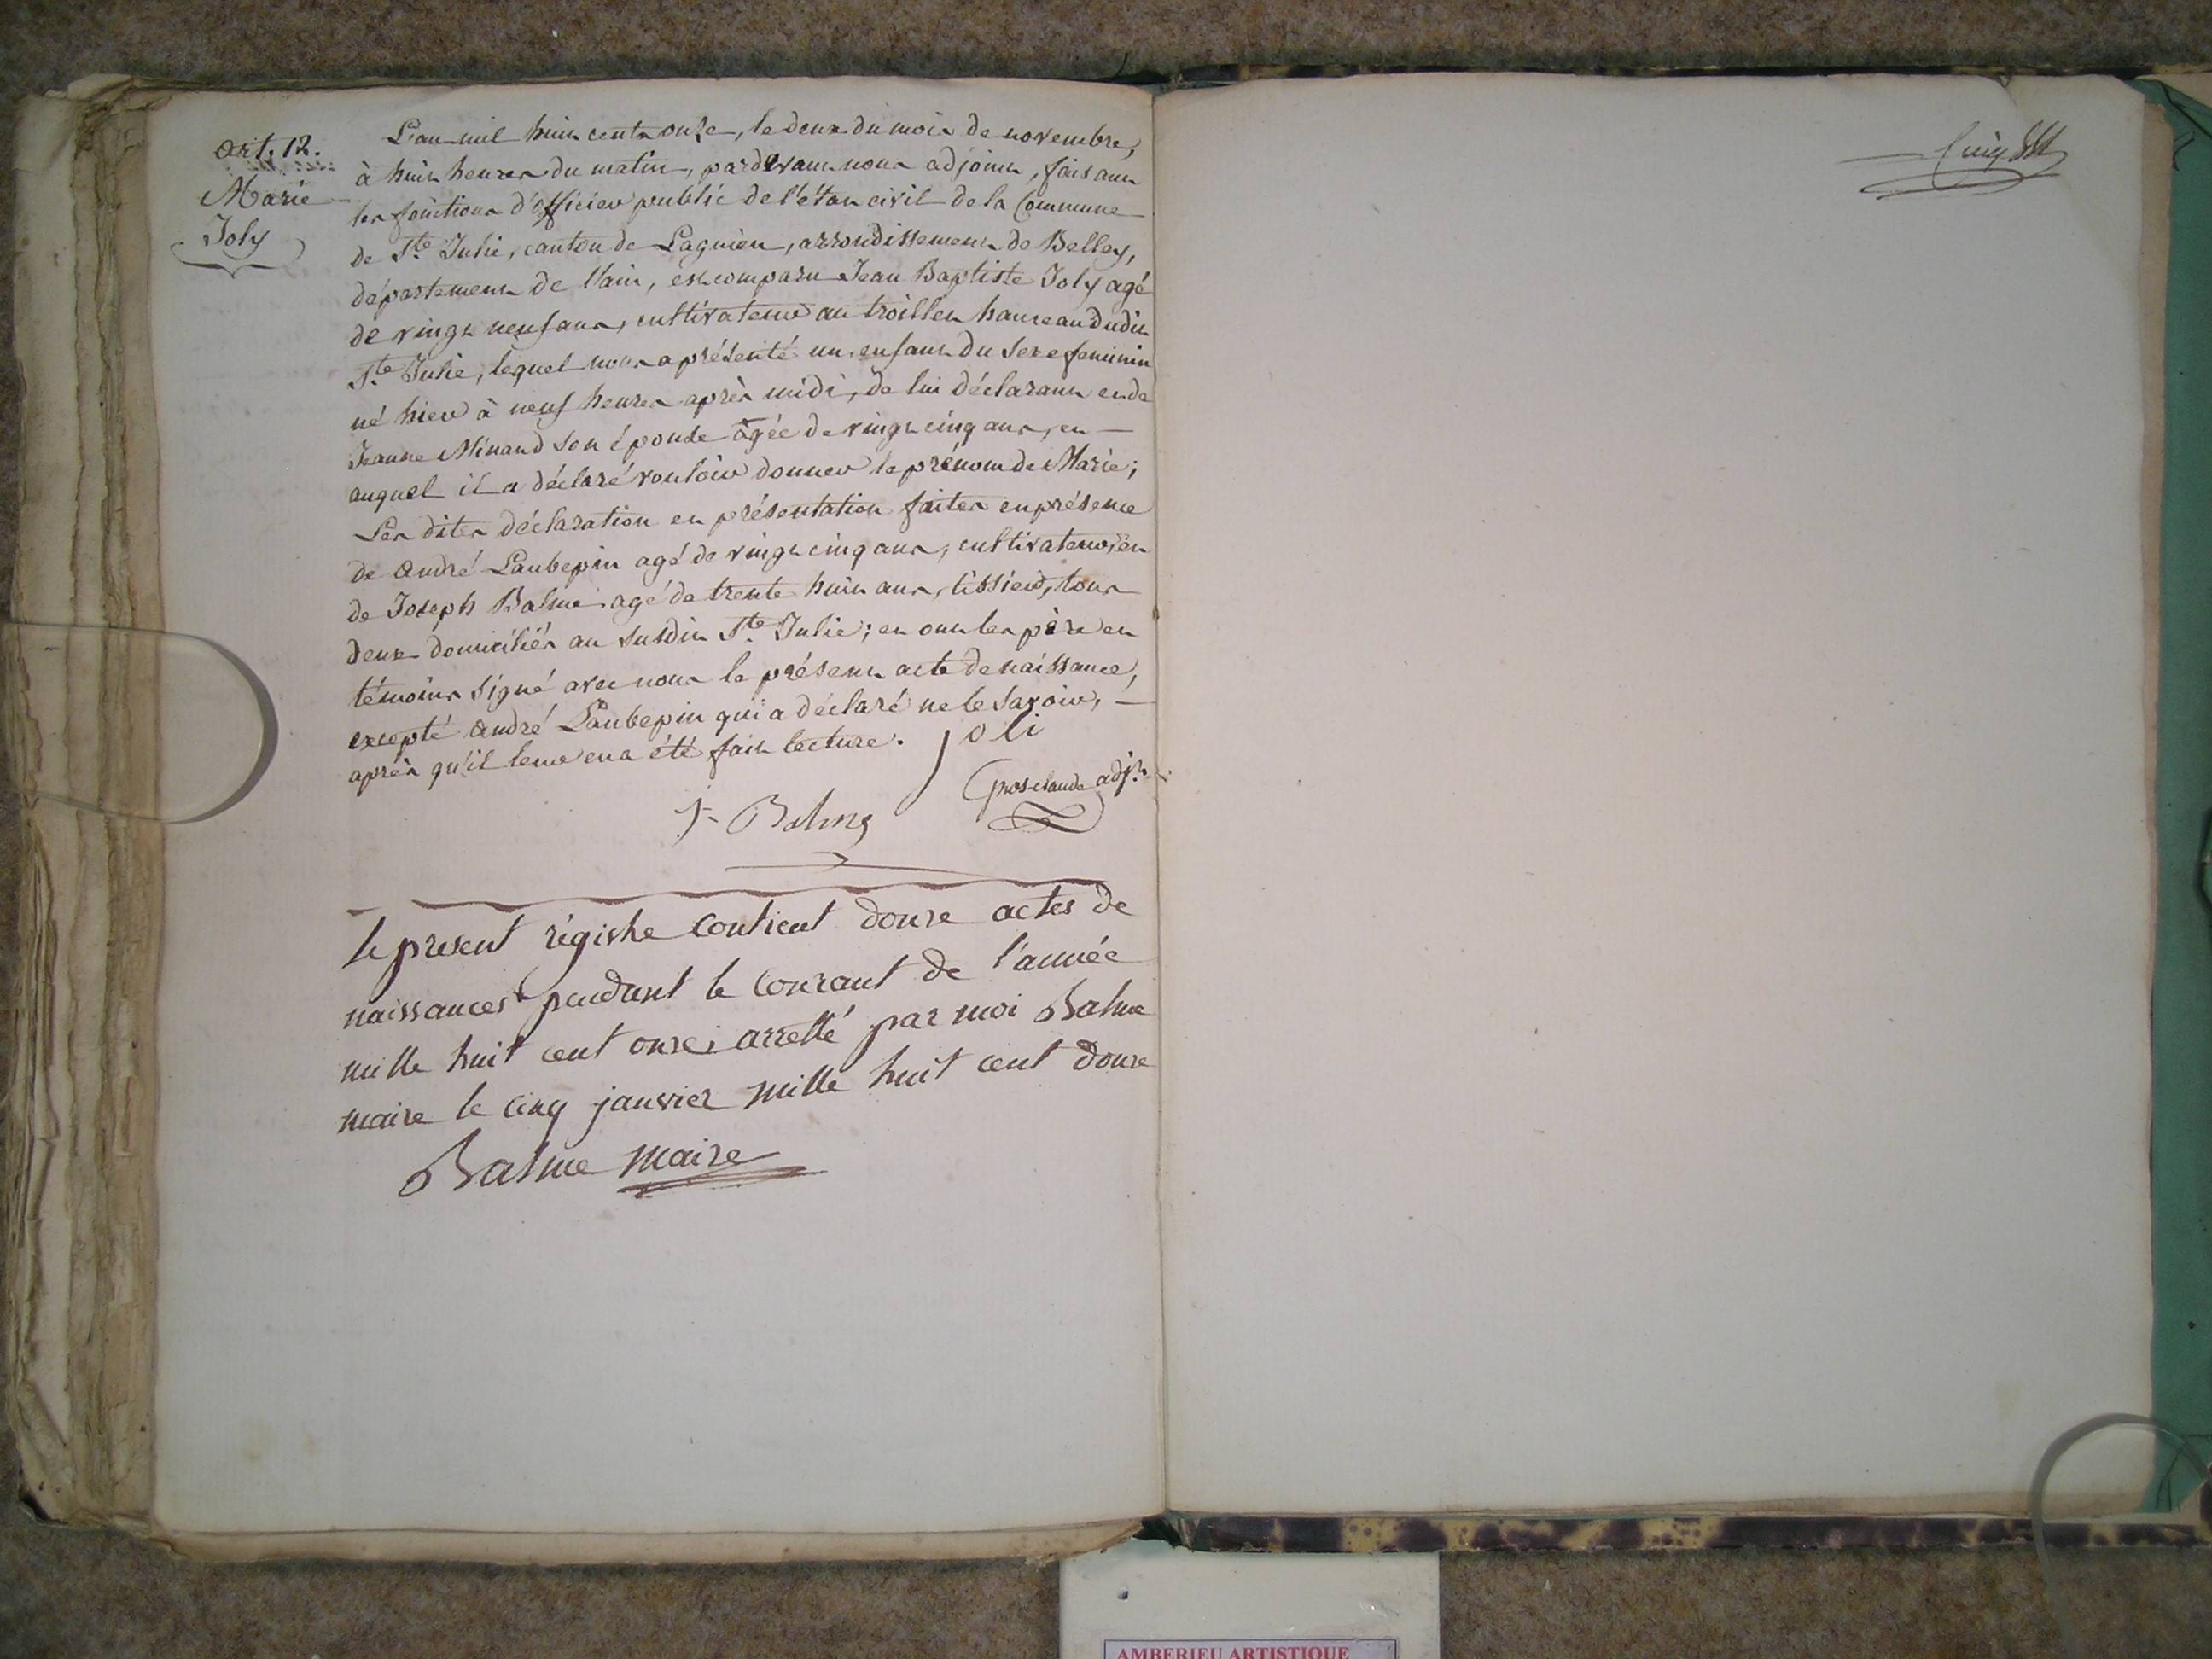 Art. 12.
Marie
Joly
L'an mil huit cent onze, le deux du mois de novembre,
à huit heures du matin, pardevant nous adjoint, faisant
les fonctions d'officier public de l'état civil de la Commune
de Ste. Julie, canton de Lagnieu, arrondissement de Belley,
département de l'ain, est comparu Jean Baptiste Joly agé
de vingt neuf ans, cultivateur au trollet hameau dudit
Ste. Julie, lequel nous a présenté un enfant du sexe feminin
né hier à neuf heures après midi, de lui déclarant et de
Jeanne Minand son épouse âgée de vingt cinq ans, et
auquel il a déclaré vouloir donner le prénom de Marie;
Les dites déclaration et présentation faites en présence
de André Laubepin agé de vingt cinq ans, cultivateur, et
de Joseph Balme agé de trente huit ans, tissier, tous
deux domiciliés au susdit Ste. Julie; et ont les père et
témoins signé avec nous le présent acte de naissance,
excepté André Laubepin qui a déclaré ne le savoir,
après qu'il leur en a été fait lecture.
joli
Grosclaude adjt.
J Balme
le present régistre contient douze actes de
naissances pendant le courant de l'année
mille huit cent onze; arretté par moi Balme
maire le cinq janvier mille huit cent douze
Balme maire
AMBERIEU ARTISTIQUE